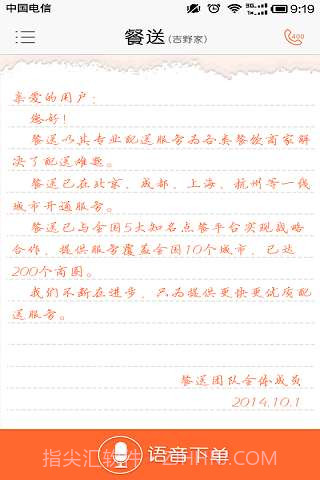 中国电信 3G 1X 9:19
餐送(吉野家) 400
亲爱的用户：
您好！
餐送以其专业配送服务为各类餐饮商家解
决了配送难题。
餐送已在北京、成都、上海、杭州等一线
城市开通服务。
餐送已与全国5大知名点餐平台实现战略
合作，提供服务覆盖全国10个城市，已达
200个商圈。
我们不断在进步，只为提供更快更优质配
送服务。
餐送团队全体成员
2014.10.1
语音下单
指尖汇软件